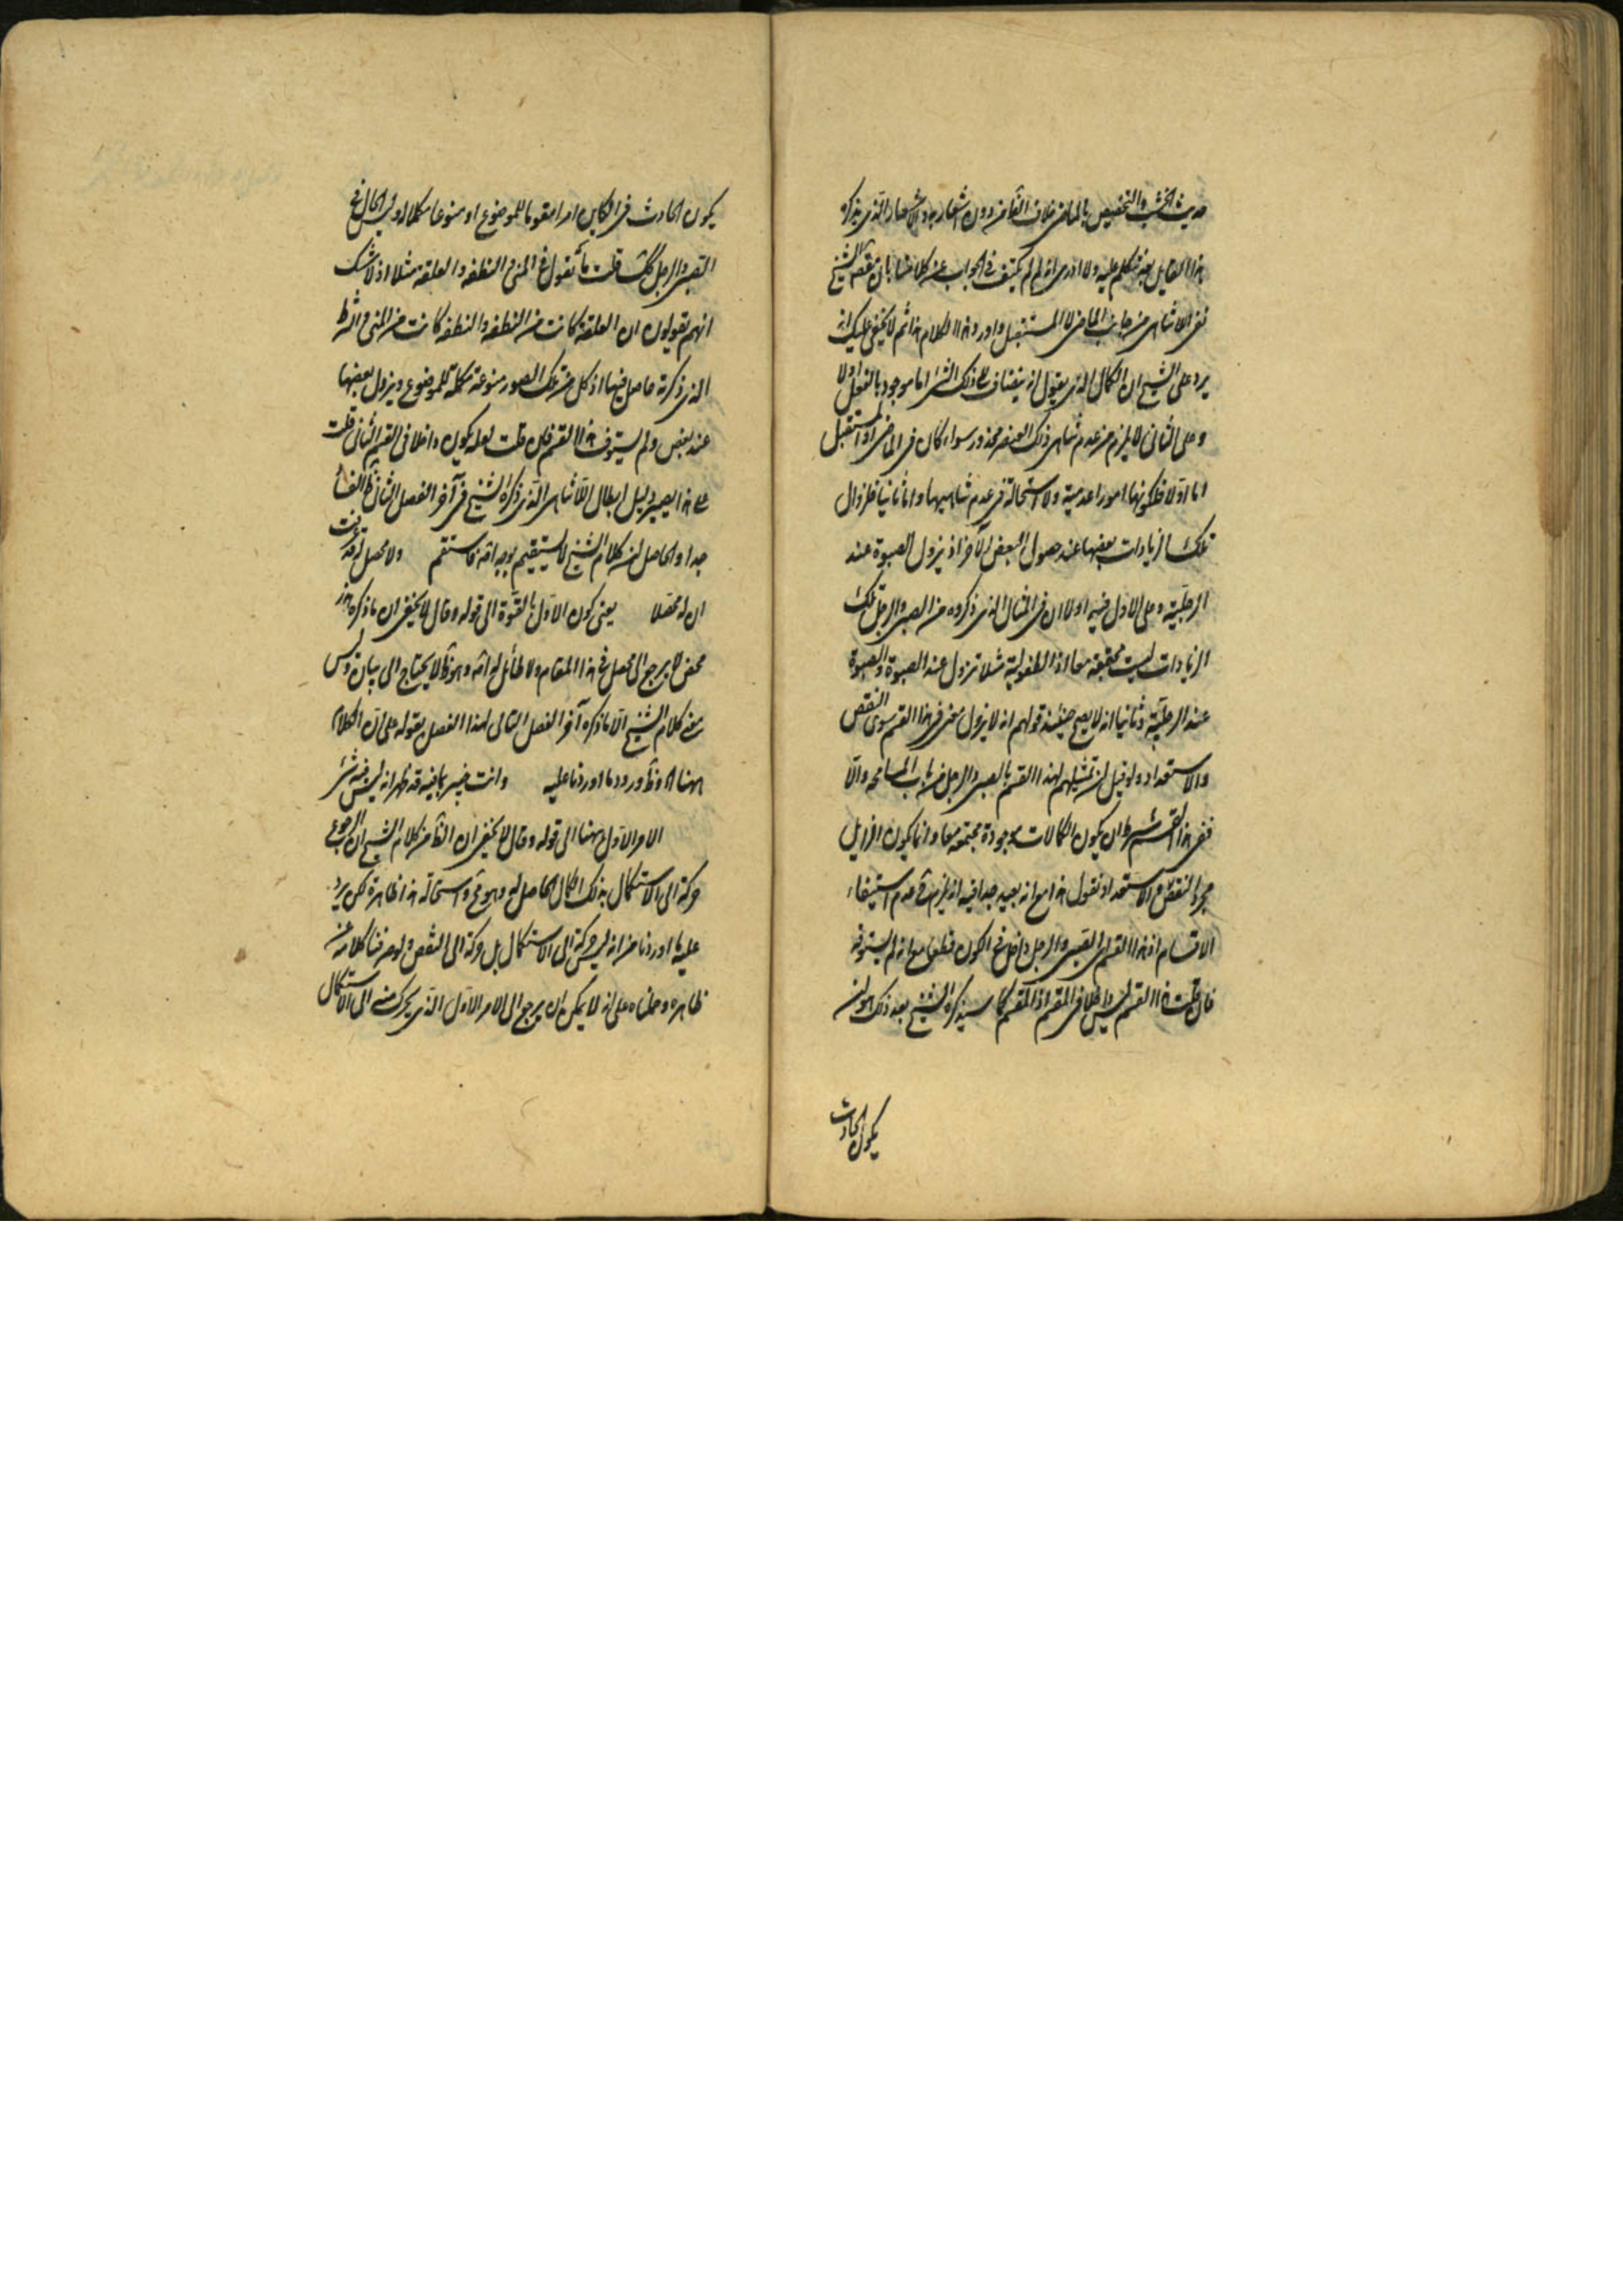 حديث الخشب والتخصيص بالماضي خلاف الظاهر دون اشعار به والاشعار الذي يذكره
هذا القايل بعد نتكلم عليه ولا ادري انه لم لم يكتف في الجواب عنه كلامنا بان مقصد الشيخ
نفي اللاتناهي من جانب الماضي لا المستقبل واورد هذا الكلام هذا ثم لا يخفى عليك انه
يرد على الشيخ ان الكمال الذي يقول انه ينضاف الى ذلك الشيء اما موجود بالفعل او لا
وعلى الثاني لا يلزم من عدم تناهي ذلك العنصر محذور سواء كان في الماضي او المستقبل
اما اولا فلكونها امورا عدمية ولا استحالة في عدم تناهيها واما ثانيا فلزوال
تلك الزيادات بعضها عند حصول البعض الآخر اذ يزول الصبوة عند
الرجلية وعلى الاول فيه اولا ان في المثال الذي ذكروه من الصبي والرجل تلك
الزيادات ليست مجتمعة معا اذ الطفولية مثلا تزول عند الصبوة والصبوة
عند الرجلية وثانيا انه لا يصح حينئذ قولهم انه لا يزول شيء في هذا القسم سوى النقص
والاستعداد ولو قيل ان تمثيلهم لهذا القسم بالصبي والرجل من باب المسامحة والا
ففي هذا القسم شرط ان يكون الكمالات موجودة مجتمعة معا وانما يكون الزايل
مجرد النقص والاستعداد نقول هذا مع انه بعيد جدا فيه انه يلزم ح عدم استيفاء
الاقسام اذ هذا القسم اي الصبي والرجل داخل في الكون قطعا مع انه لم يستوفه
فان قلت هذا القسم ليس داخلا في المقسم اذ المقسم كما سيذكره الشيخ بعد ذلك هو ان
يكون الحادث
يكون الحادث في الكاين امرا مقوما للموضوع او منوعا مكملا له وليس الحال في
الصبي والرجل كك قلت ما تقول في المني والنطفه والعلقه مثلا اذ لا شك
انهم يقولون ان العلقة كانت من النطفه والنطفه كانت من المني والشرط
الذي ذكرته حاصل فيها اذ كل من تلك الصور منوعة مكملة للموضوع ويزول بعضها
عند بعض ولم يستوف هذا القسم فان قلت لعله يكون داخلا في القسم الثاني قلت
على هذا يصير دليل ابطال اللاتناهي الذي ذكره الشيخ في آخر الفصل الثاني ظ الفساد
جدا والحاصل ان كلام الشيخ لا يستقيم بوجه اصلا فاستقم ولا محصل له قد عرفت
ان له محصلا يعني كون الاول بالقوة الى قوله وقال لا يخفى ان ما ذكره هذر
محض لا يرجع الى محصل في هذا المقام ولا طائل له اصلا وهو ظ لا يحتاج الى بيان وليس
معنى كلام الشيخ الا ما ذكره آخر الفصل التالي لهذا الفصل بقوله على ان الكلام
ههنا اه وظ ورود ما اوردنا عليه وانت خبير بما فيه قد ظهر انه ليس فيه شيء
الامر الاول ههنا الى قوله وقال لا يخفى ان الظ من كلام الشيخ ان الرجوع
حركة الى الاستكمال بذلك الكمال الحاصل له وهو مح واستحالة هذا ظاهرة لكن يرد
عليه ما اوردنا من انه ليس حركة الى الاستكمال بل حركة الى النقص ولو صرفنا كلامه عن
ظاهره وحملناه على انه لا يمكن ان يرجع الى الامر الاول الذي يتحرك منه الى الاستكمال